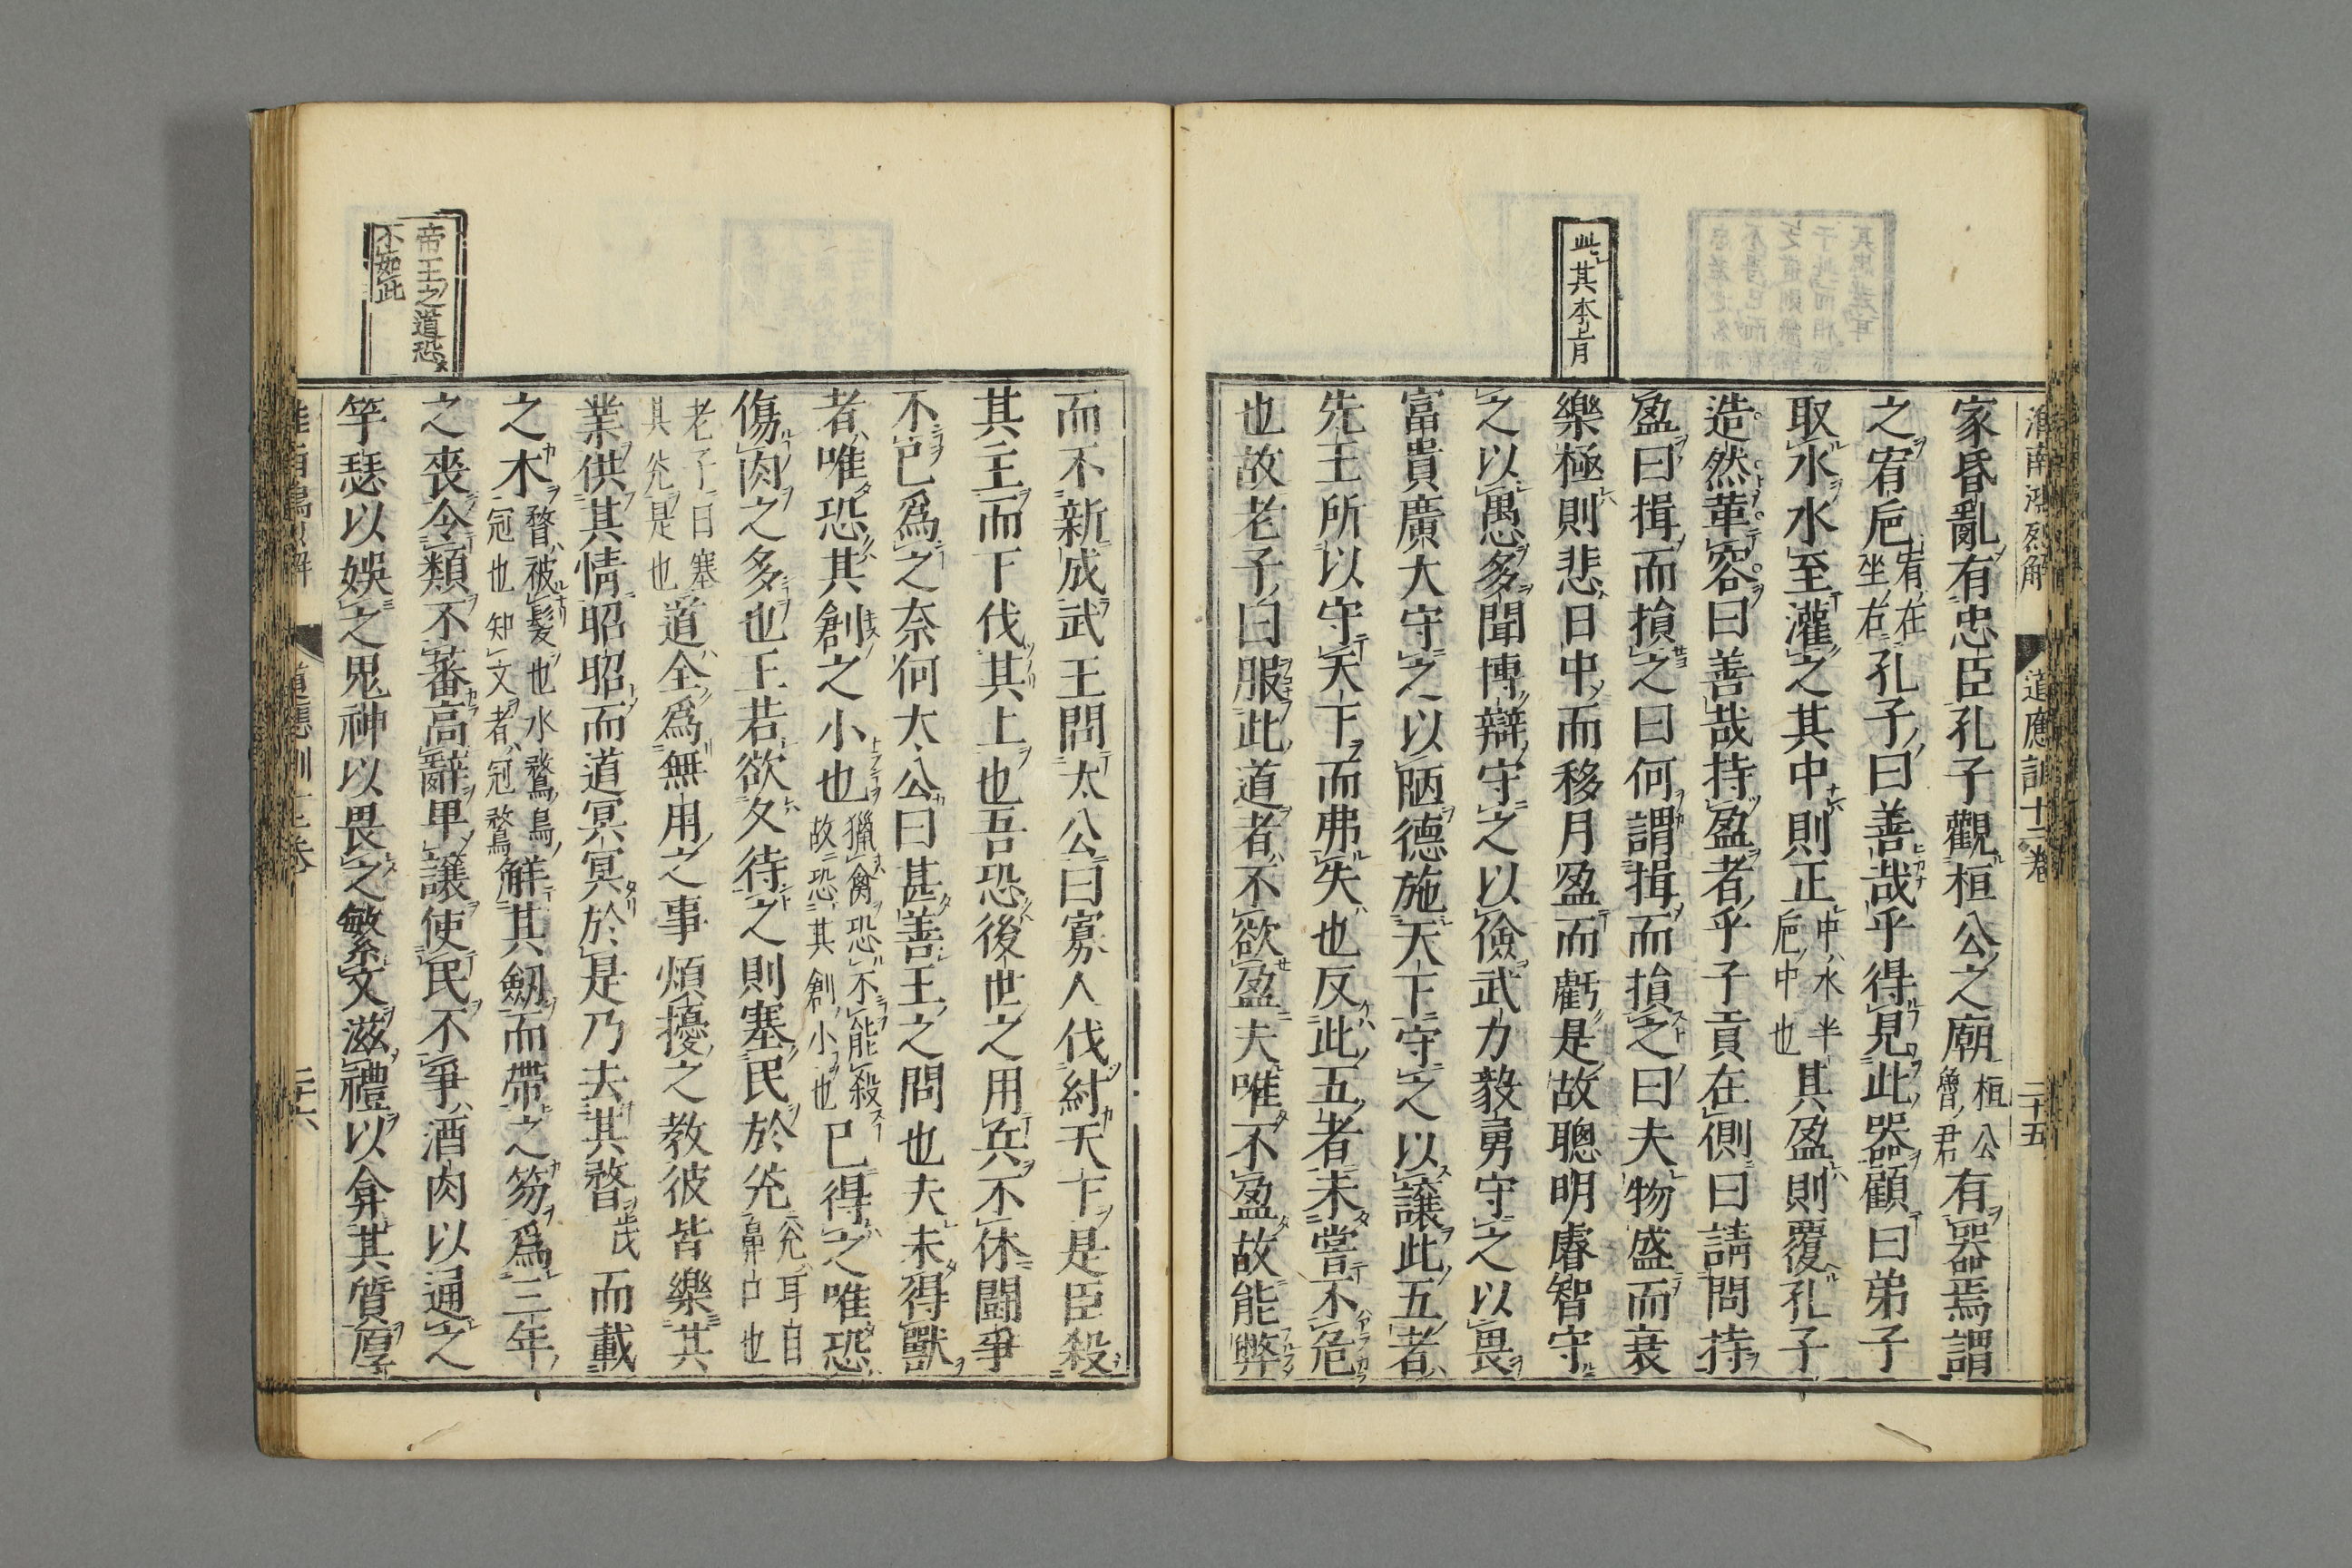 淮南鴻烈解 道應訓十二卷 二十五
此其本旨
家昏亂有忠臣孔子觀桓公之廟桓公魯君有器焉謂
之宥巵宥在坐右孔子曰善哉乎得見此器顧曰弟子
取水水至灌之其中則正中水半巵中也其盈則覆孔子
造然革容曰善哉持盈者乎子貢在側曰請問持
盈曰揖而損之曰何謂揖而損之曰夫物盛而衰
樂極則悲日中而移月盈而虧是故聰明睿智守
之以愚多聞博辯守之以儉武力毅勇守之以畏
富貴廣大守之以陋德施天下守之以讓此五者
先王所以守天下而弗失也反此五者未嘗不危
也故老子曰服此道者不欲盈夫唯不盈故能弊
而不新成武王問太公曰寡人伐紂天下是臣殺
其主而下伐其上也吾恐後世之用兵不休鬭爭
不已爲之奈何太公曰甚善王之問也夫未得獸
者唯恐其創之小也獵禽恐不能殺故恐其創小也已得之唯恐
傷肉之多也王若欲久待之則塞民於兊兊耳目鼻口也
老子曰塞其兊是也道全爲無用之事煩擾之教彼皆樂其
業供其情昭昭而道冥冥於是乃去其瞀而載
之木瞀被髮也水鶩鳥冠也知文者冠鶩解其劒而帶之笏爲三年
之喪令類不蕃高辭卑讓使民不爭酒肉以通之
竽瑟以娛之鬼神以畏之繁文滋禮以弇其質厚
帝王之道恐
不如此
二十六